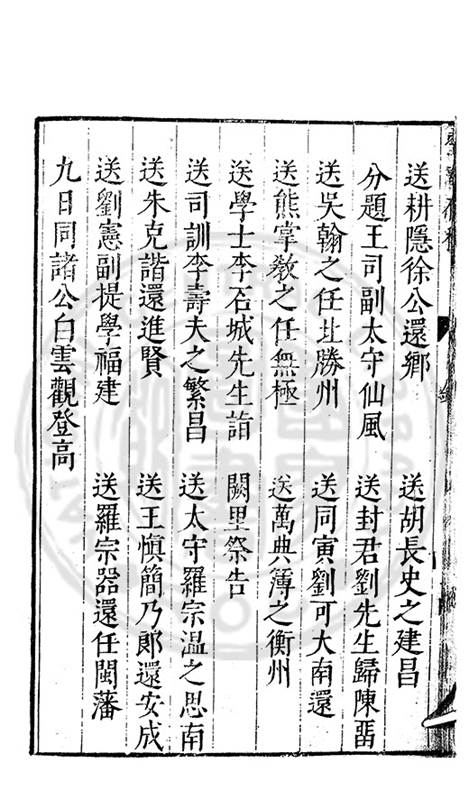 送耕隱徐公還鄉　送胡長史之建昌
分題王司副太守仙風　送封君劉先生歸陳畱
送吳翰之任北勝州　送同寅劉可大南還
送熊掌敎之任無極　送萬典簿之衡州
送學士李石城先生詣　闕里祭告
送司訓李壽夫之繁昌　送太守羅宗溫之思南
送朱克諧還進賢　送王愼簡乃郎還安成
送劉憲副提學福建　送羅宗器還任閩藩
九日同諸公白雲觀登高